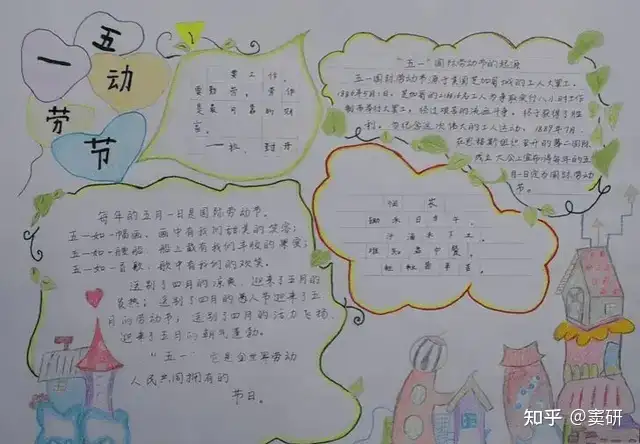 五
一动
劳节
要工作，
要勤劳：劳作
是最可靠的财
富。
——拉·封丹
“五一”国际劳动节的起源
五一国际劳动节源于美国芝加哥城的工人大罢工。
1886年5月1日，芝加哥的
制而举行大罢工，经过艰苦的流血斗争，终于获得了胜
利。为纪念这次伟大的工人运动，1889年7月，
在恩格斯组织召开的第二国际
成立大会上宣布将每年的五
月一日定为国际劳动
节。
悯农
锄禾日当午，
汗滴禾下土。
谁知盘中餐，
粒粒皆辛苦。
每年的五月一日是国际劳动节。
五一如一幅画，画中有我们甜美的笑容；
五一如一艘船，船上载有我们丰收的果实；
五一如一首歌，歌中有我们的欢笑。
送别了四月的凉爽，迎来了五月的
炎热；送别了四月的愚人节迎来了五
月的劳动节；送别了四月的活力飞扬，
迎来了五月的朝气蓬勃。
“五一”它是全世界劳动
人民共同拥有的
节日。
知乎 @窦研